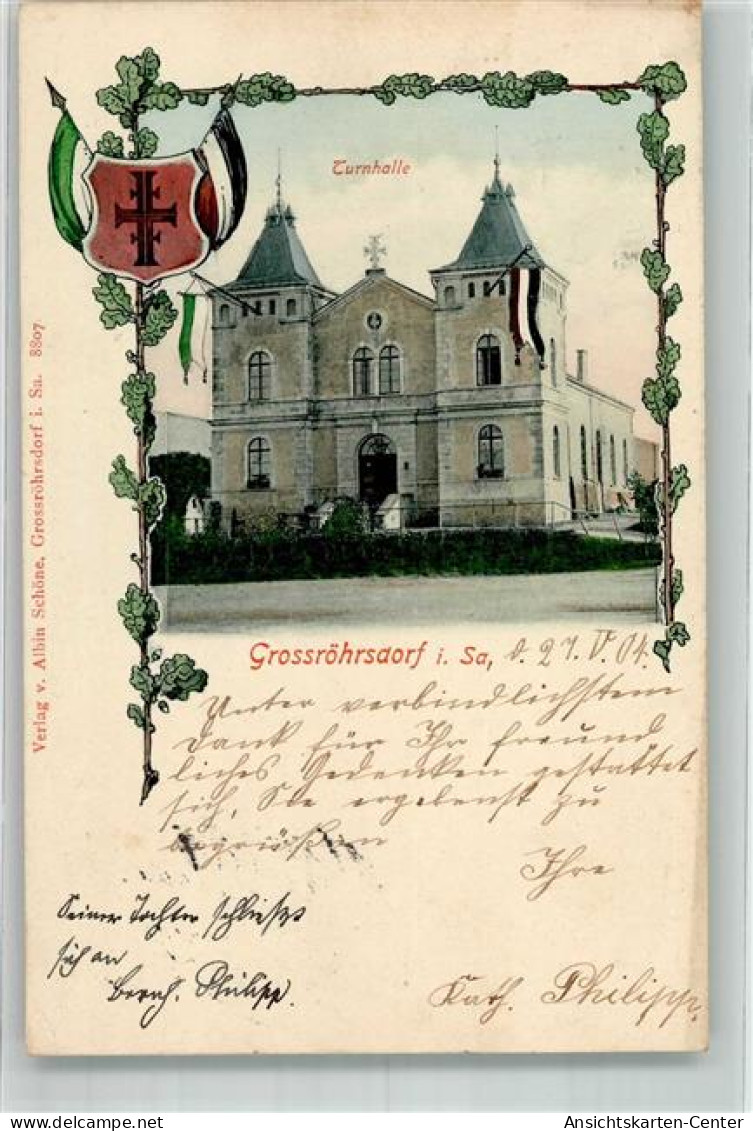 Turnhalle
Verlag v. Albin Schöne, Grossröhrsdorf i. Sa. 8807
Grossröhrsdorf i. Sa, d. 27. V. 04.
Unter verbindlichstem
Dank für Ihr freund
liches Gedenken gestattet
sich, Sie ergebenst zu
begrüßen
Ihre
Kath. Philipp.
Seiner Tochter schließt
sich an
Bernh. Philipp.
Ansichtskarten-Center